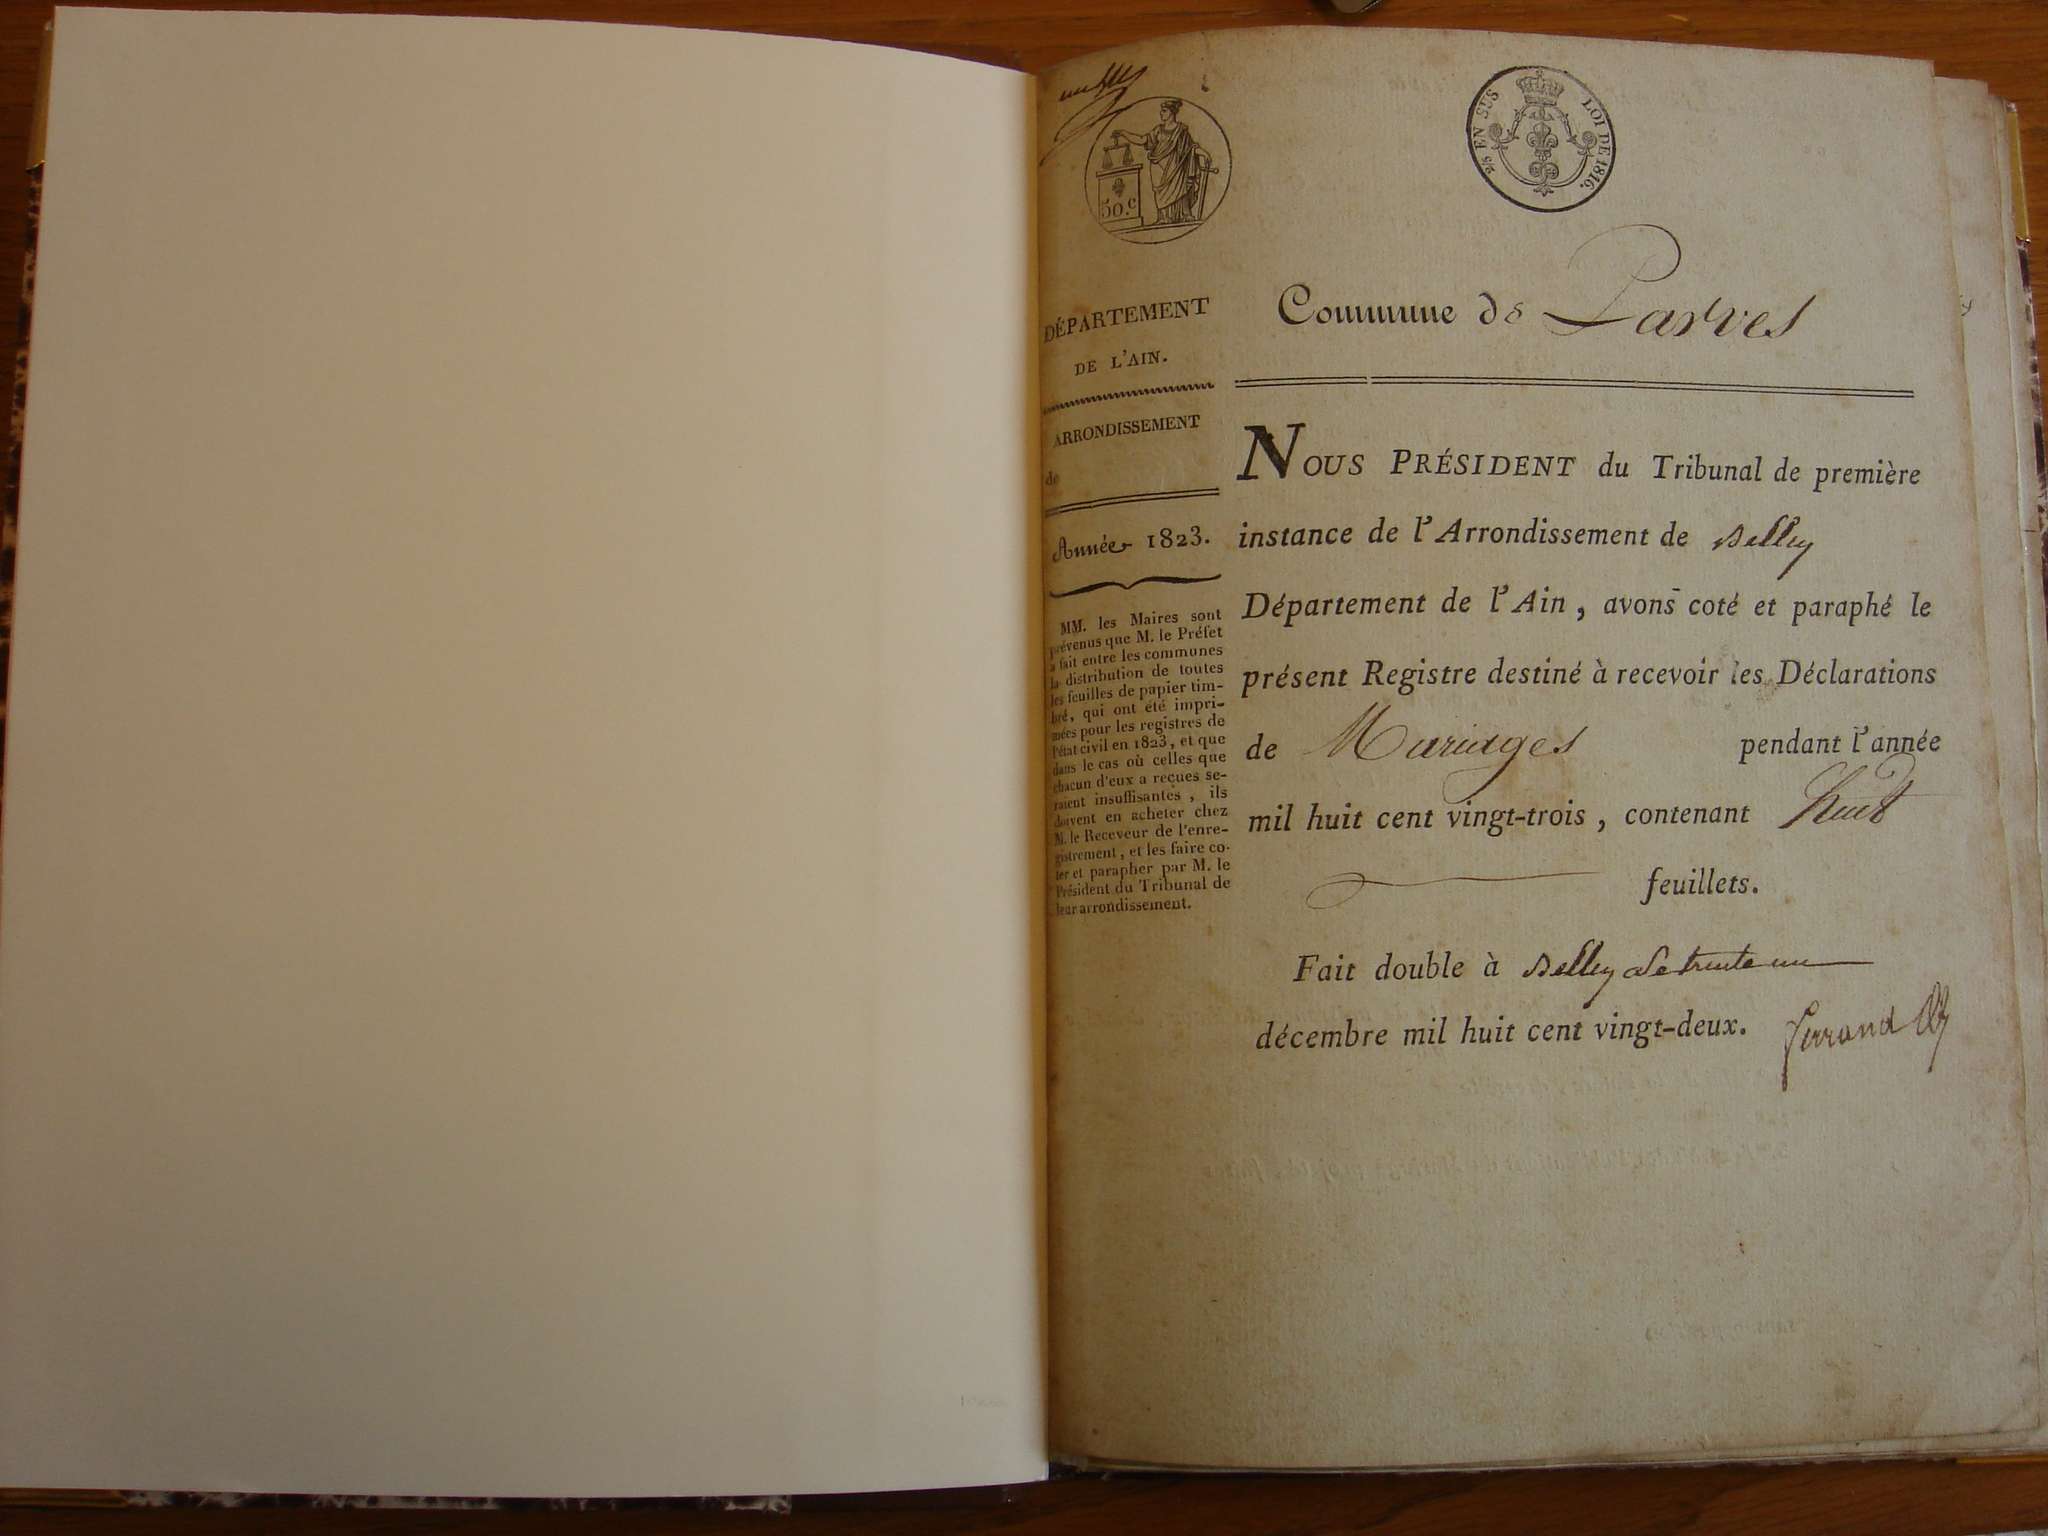 50.c
2/5 EN SUS LOI DE 1816.
DÉPARTEMENT
DE L'AIN.
ARRONDISSEMENT
de
Année 1823.
MM. les Maires sont
prévenus que M. le Préfet
a fait entre les communes
la distribution de toutes
les feuilles de papier tim-
bré, qui ont été impri-
mées pour les registres de
l'état civil en 1823, et que
dans le cas où celles que
chacun d'eux a reçues se-
raient insuffisantes, ils
doivent en acheter chez
M. le Receveur de l'enre-
gistrement, et les faire co-
ter et parapher par M. le
Président du Tribunal de
leur arrondissement.
Commune de Parves
NOUS PRÉSIDENT du Tribunal de première
instance de l'Arrondissement de Belley
Département de l'Ain, avons coté et paraphé le
présent Registre destiné à recevoir les Déclarations
de Mariages pendant l'année
mil huit cent vingt-trois, contenant huit
feuillets.
Fait double à Belley le trente un
décembre mil huit cent vingt-deux.